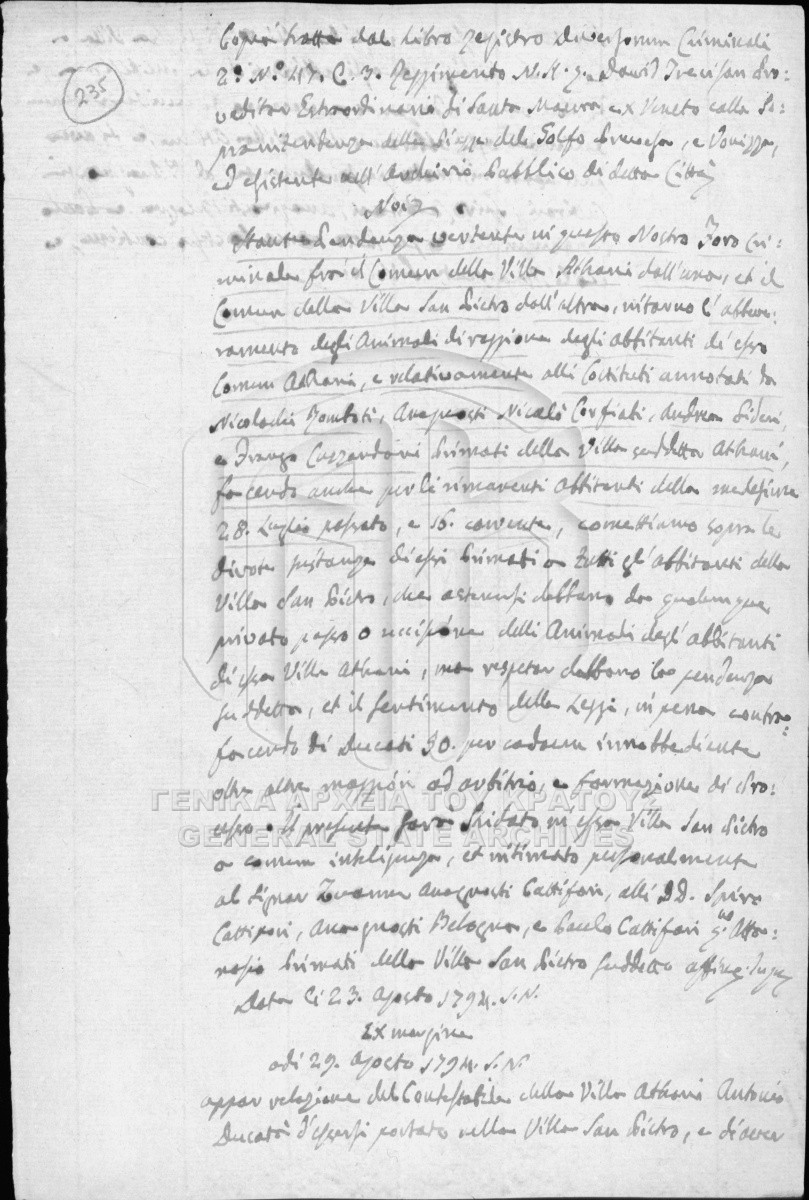 235
Copia tratta dal Libro Registro Diversorum Criminali
2° N° 47. C. 3. Reggimento N. H. g. David Trevisan Pro=
veditor Estraordinario di Santa Maura ex Veneto colla So=
praintendenza delle Piazze del Golfo Prevesa, e Vonizza,
ed esistente nell'Archivio Pubblico di detta Città
Noi
Stante Pendenza vertente in questo Nostro Foro Cri=
minale frà il Comun della Villa Athani dall'una, et il
Comun della Villa San Pietro dall'altra, intorno l'abbeve=
ramento degli Animali di raggione degli abbitanti di esso
Comun Athani, e relativamente alli Costituti annotati da
Nicolachi Bomboti, Anagnosti Nicolò Corfiati, Andrea Sideri,
e Frango Cazzandoni Primati della Villa suddetta Athani,
facendo anche per li rimanenti abbitanti della medesima
28. Luglio passato, e 16. corrente, comettiamo sopra le
divote instanze di essi Primati a tutti gl'abbitanti della
Villa San Pietro, che astenersi debbano da qualunque
privato passo o uccisione delli Animali degl'abbitanti
di essa Villa Athani, ma rispetar debbano la pendenza
suddetta, et il sentimento della Leggi, in pena contra=
facendo di Ducati 30. per cadaun innobbediente
oltre altre maggiori ad arbitrio, e formazione di Pro=
cesso. Il presente sarà stridato in essa Villa San Pietro
a comun inteligenza, et intimato personalmente
al Signor Zuanne Anagnosti Cattifori, alli DD. Spiro
Cattifori, Anagnosti Bologna, e Paulo Cattifori q. Atta=
nasio Primati della Villa San Pietro suddetta
Data li 23. Agosto 1794. S. N.
Ex margine
adi 29. Agosto 1794. S. N.
appar relazione del Contestabile della Villa Athani Antonio
Ducatò d'essersi portato nella Villa San Pietro, e di aver
ΓΕΝΙΚΑ ΑΡΧΕΙΑ ΤΟΥ ΚΡΑΤΟΥΣ
GENERAL STATE ARCHIVES